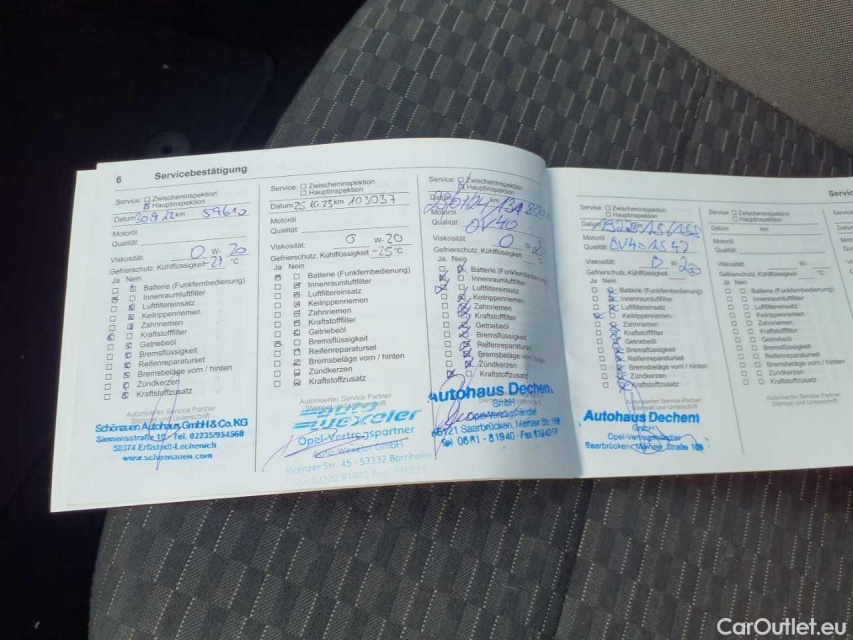 6 Servicebestätigung
Service: Zwischeninspektion
Hauptinspektion
Datum km 59610
Motoröl
Qualität:
Viskosität: 0 W- 20
Gefrierschutz, Kühlflüssigkeit -27 °C
Ja Nein
Batterie (Funkfernbedienung)
Innenraumluftfilter
Luftfiltereinsatz
Keilrippenriemen
Zahnriemen
Kraftstofffilter
Getriebeöl
Bremsflüssigkeit
Reifenreparaturset
Bremsbeläge vorn / hinten
Zündkerzen
Kraftstoffzusatz
Autorisierter Service Partner
Stempel und Unterschrift
Schönauen Autohaus GmbH & Co. KG
Siemensstraße 19 Tel. 02235/954560
50374 Erftstadt-Lechenich
www.schoenauen.com
Service: Zwischeninspektion
Hauptinspektion
Datum 25.10.23 km 103037
Motoröl
Qualität:
Viskosität: 0 W-20
Gefrierschutz, Kühlflüssigkeit -25 °C
Ja Nein
Batterie (Funkfernbedienung)
Innenraumluftfilter
Luftfiltereinsatz
Keilrippenriemen
Zahnriemen
Kraftstofffilter
Getriebeöl
Bremsflüssigkeit
Reifenreparaturset
Bremsbeläge vorn / hinten
Zündkerzen
Kraftstoffzusatz
Autorisierter Service Partner
Stempel und Unterschrift
auto
wexeler
Opel-Vertragspartner
Auto Wexeler GmbH
Mainzer Str. 45 - 53332 Bornheim
Service: Zwischeninspektion
Hauptinspektion
Datum km
Motoröl
Qualität: OV40
Viskosität: 0 W-
Gefrierschutz, Kühlflüssigkeit °C
Ja Nein
Batterie (Funkfernbedienung)
Innenraumluftfilter
Luftfiltereinsatz
Keilrippenriemen
Zahnriemen
Kraftstofffilter
Getriebeöl
Bremsflüssigkeit
Reifenreparaturset
Bremsbeläge vorn / hinten
Zündkerzen
Kraftstoffzusatz
Autohaus Dechent
GmbH
66121 Saarbrücken, Mainzer Str. 168
Service: Zwischeninspektion
Hauptinspektion
Datum km
Motoröl
Qualität:
Viskosität: 0 W- 20
Gefrierschutz, Kühlflüssigkeit °C
Ja Nein
Batterie (Funkfernbedienung)
Innenraumluftfilter
Luftfiltereinsatz
Keilrippenriemen
Zahnriemen
Kraftstofffilter
Getriebeöl
Bremsflüssigkeit
Reifenreparaturset
Bremsbeläge vorn / hinten
Zündkerzen
Kraftstoffzusatz
Autorisierter Service Partner
Stempel und Unterschrift
Autohaus Dechent
GmbH
Opel-Vertragshändler
Saarbrücken, Mainzer Straße 168
Service: Zwischeninspektion
Hauptinspektion
Datum km
Motoröl
Qualität:
Viskosität: W-
Gefrierschutz, Kühlflüssigkeit °C
Ja Nein
Batterie (Funkfernbedienung)
Innenraumluftfilter
Luftfiltereinsatz
Keilrippenriemen
Zahnriemen
Kraftstofffilter
Getriebeöl
Bremsflüssigkeit
Reifenreparaturset
Bremsbeläge vorn / hinten
Zündkerzen
Kraftstoffzusatz
Autorisierter Service Partner
Stempel und Unterschrift
CarOutlet.eu